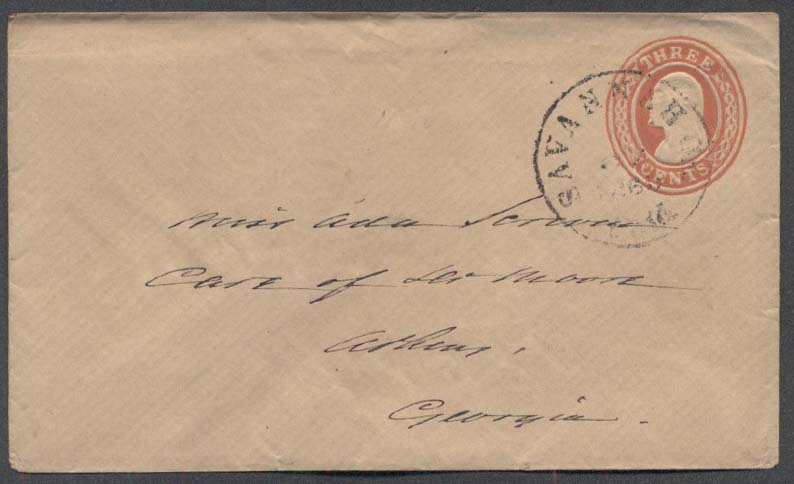 THREE
CENTS
SAVANNAH
Miss Ada
Care of Dr Moore
Athens,
Georgia.